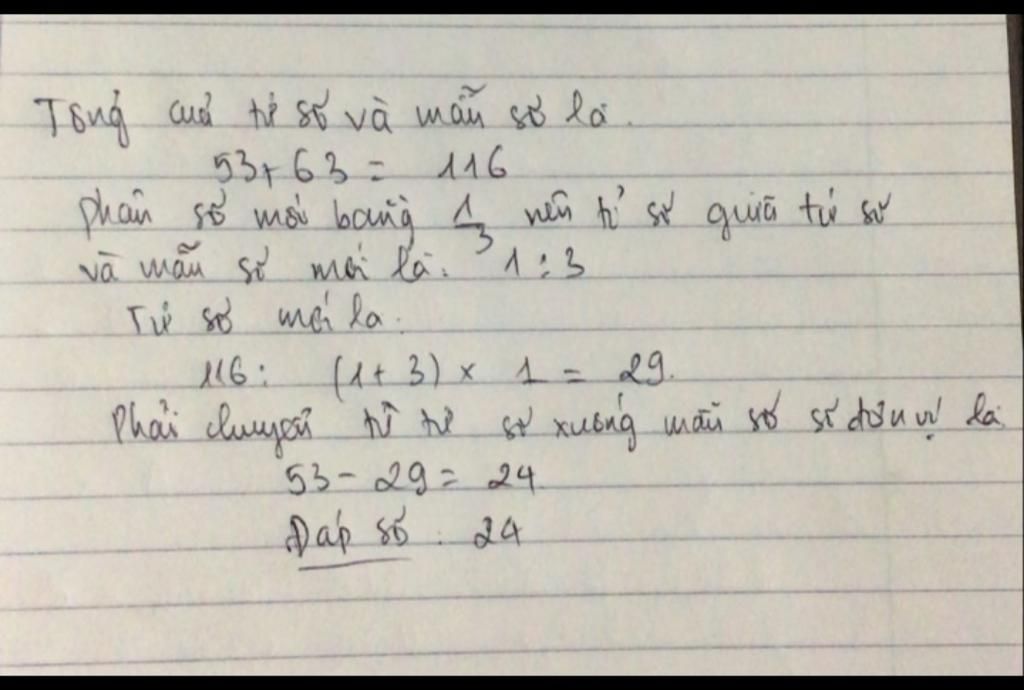 Tổng của tử số và mẫu số là.
53 + 63 = 116
phân số mới bằng 1/3 nên tỉ số giữa tử số
và mẫu số mới là: 1 : 3
Tử số mới là.
116 : (1 + 3) × 1 = 29.
Phải chuyển từ tử số xuống mẫu số số đơn vị là
53 - 29 = 24
Đáp số : 24